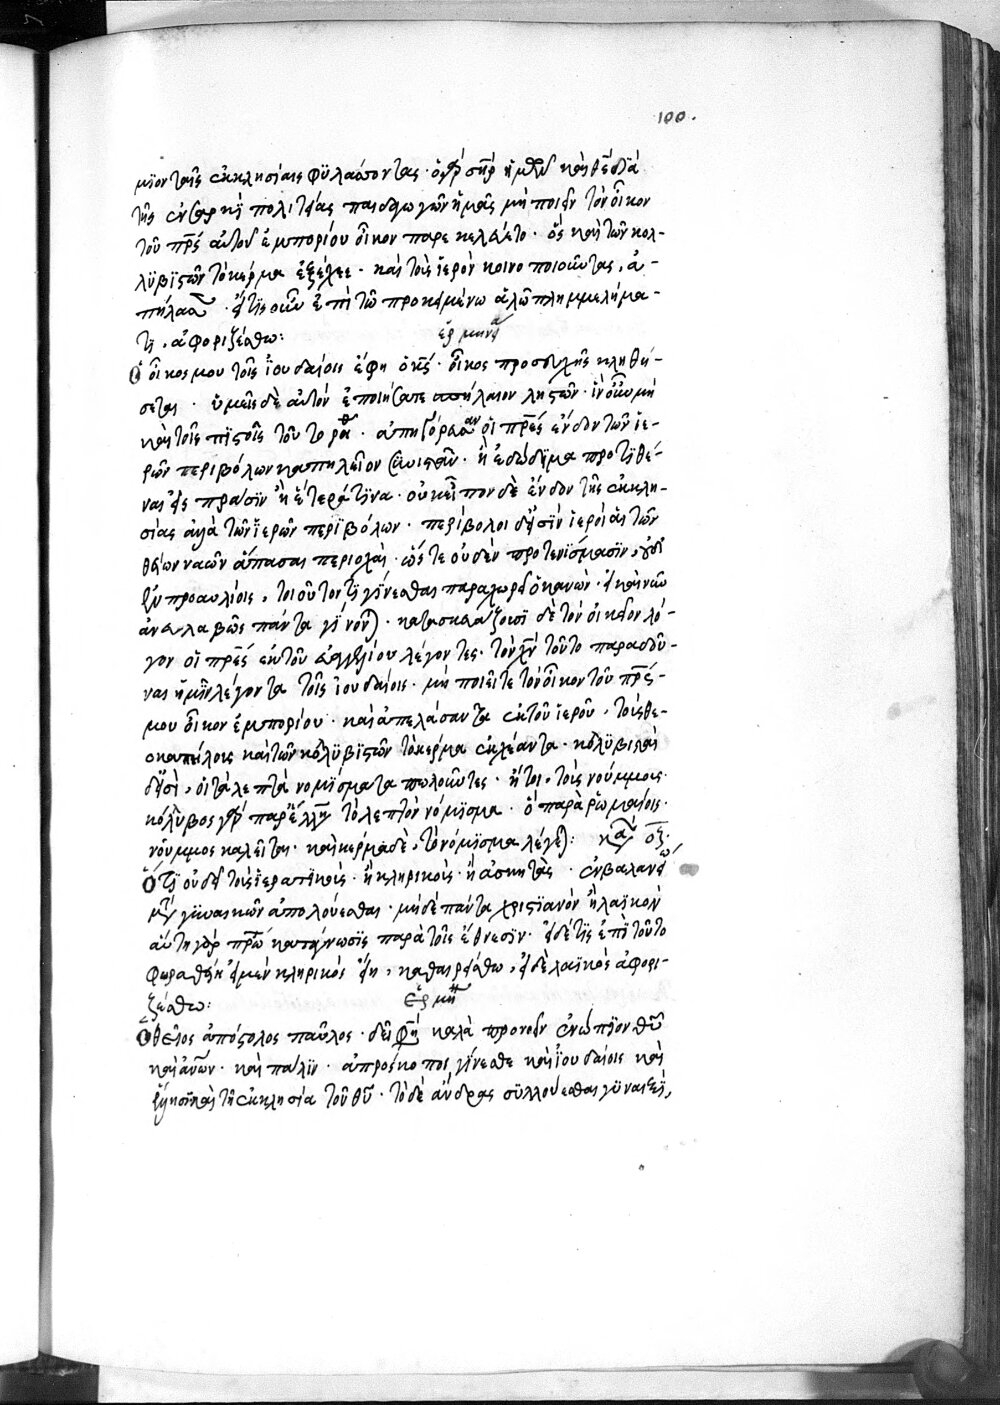 100.
μιον ταῖς ἐκκλησίαις φυλάσσοντας· ὁ γὰρ σηρ ἡμῶν καὶ θεὸς διὰ
τῆς ἐν σαρκὶ πολιτείας παιδαγωγῶν ἡμᾶς μὴ ποιεῖν τὸν οἶκον
τοῦ πρς αὐτοῦ ἐμπορίου οἶκον παρεκελεύετο· ὃς καὶ τῶν κολ-
λυβιστῶν τὸ κέρμα ἐξέχεε· καὶ τοὺς ἱερὸν κοινοποιοῦντας, ἀ-
πήλασε· εἴ τις οὖν ἐπὶ τῶ προκειμένω ἁλῶ πλημμελήμα-
τι, ἀφοριζέσθω:
ἑρμηνεία
Ὁ οἶκος μου τοῖς ἰουδαίοις ἔφη ὁ κς· οἶκος προσευχῆς κληθή-
σεται· ὑμεῖς δὲ αὐτὸν ἐποιήσατε σπήλαιον ληστῶν· ἵν' οὖν μὴ
καὶ τοῖς πιστοῖς τοῦτο ῥηθῆ· ἀπηγόρευσαν οἱ πρες ἔνδον τῶν ἱε-
ρῶν περιβόλων καπηλεῖον συνιστᾶν· ἢ ἐδώδιμα προτιθέ-
ναι εἰς πρᾶσιν ἢ ἕτερά τινα· οὐκ εἶπον δὲ ἔνδον τῆς ἐκκλη-
σίας ἀλλὰ τῶν ἱερῶν περιβόλων· περίβολοι δὲ εἰσὶν ἱεροὶ αἱ τῶν
θείων ναῶν ἅπασαι περιοχαί· ὥστε οὐδὲν προτενίσμασιν, οὐδ'
ἐν προαυλίοις, τοιοῦτον τι γίνεσθαι παραχωρεῖ ὁ κανών· εἰ καὶ νῦν
ἀνευλαβῶς πάντα γίνονται· κατασκευάζουσι δὲ τὸν οἰκεῖον λό-
γον οἱ πρες ἐκ τοῦ εὐαγγελίου λέγοντες· τὸν χν τοῦτο παραδοῦ-
ναι ἡμῖν λέγοντα τοῖς ἰουδαίοις· μὴ ποιεῖτε τὸν οἶκον τοῦ πρς
μου οἶκον ἐμπορίου· καὶ ἀπελάσαντα ἐκ τοῦ ἱεροῦ, τούς θε-
οκαπήλους καὶ τῶν κολλυβιστῶν τὸ κέρμα ἐκχέαντα· κολλυβισταὶ
δὲ εἰσὶ, οἱ τὰ λεπτὰ νομίσματα πωλοῦντες· ἤτοι, τοὺς νούμμους·
κόλλυβος γὰρ παρ' ἕλλησι τὸ λεπτὸν νόμισμα· ὃ παρὰ ῥωμαίοις
νοῦμμος καλεῖται· καὶ κέρμα δὲ, τὸ νόμισμα λέγεται: κανὼν οζ·
Ὅτι οὐ δεῖ τοὺς ἱερατικοὺς· ἢ κληρικοὺς· ἢ ἀσκητὰς· ἐν βαλανείω
μετὰ γυναικῶν ἀπολούεσθαι· μηδὲ πάντα χριστιανὸν ἢ λαϊκὸν
αὕτη γὰρ πρώτη κατάγνωσις παρὰ τοῖς ἔθνεσιν· εἰ δέ τις ἐπὶ τοῦτο
φωραθῆ εἰ μὲν κληρικὸς εἴη, καθαιρείσθω, εἰ δὲ λαϊκὸς ἀφορι-
ζέσθω:
Ἑρμη
Ὁ θεῖος ἀπόστολος παῦλος· δεῖ φη καλὰ προνοεῖν ἐνώπιον θυ
καὶ ἀνων· καὶ πάλιν· ἀπρόσκοποι γίνεσθε καὶ ἰουδαίοις καὶ
ἕλλησι καὶ τῆ ἐκκλησία τοῦ θυ· τὸ δὲ ἄνδρας συλλούεσθαι γυναιξὶ,